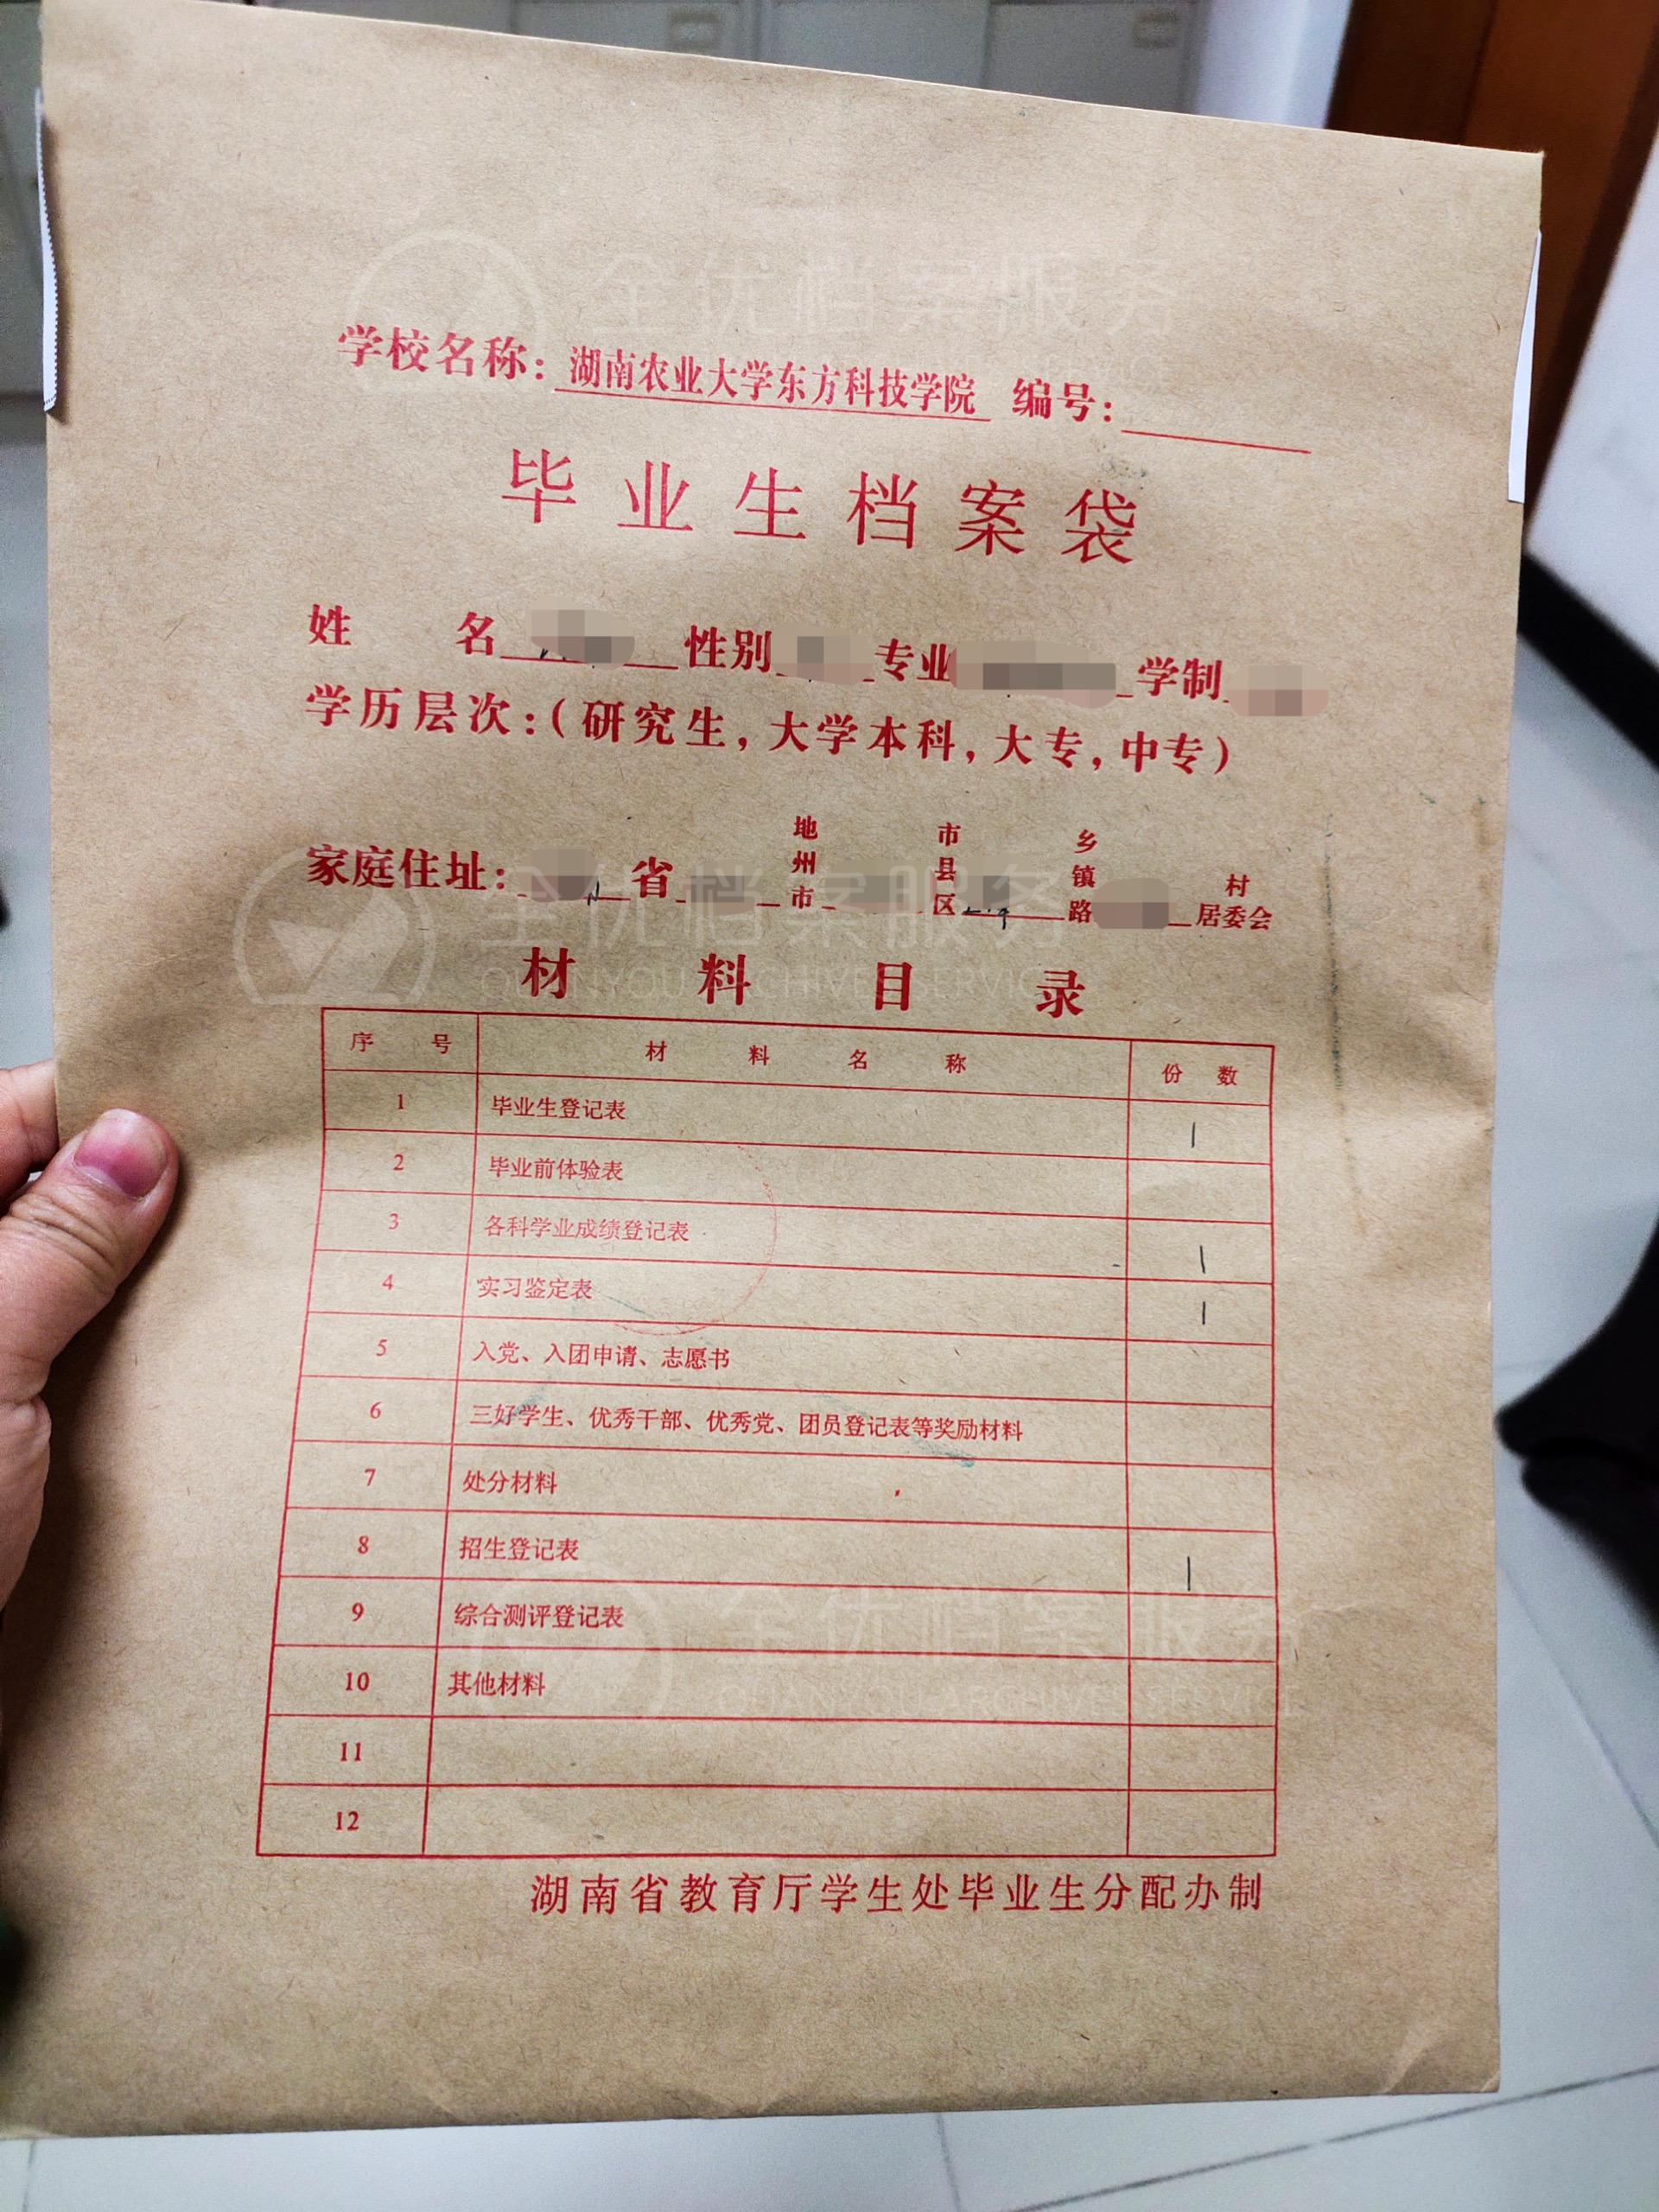 全优档案服务
学校名称：湖南农业大学东方科技学院 编号：
毕业生档案袋
姓名 性别 专业 学制
学历层次：（研究生，大学本科，大专，中专）
家庭住址： 省 地州市 市县区 乡镇路 村居委会
全优档案服务
QUANYOU ARCHIVES SERVICE
材料目录
序号 材料名称 份数
1 毕业生登记表 1
2 毕业前体验表
3 各科学业成绩登记表 1
4 实习鉴定表 1
5 入党、入团申请、志愿书
6 三好学生、优秀干部、优秀党、团员登记表等奖励材料
7 处分材料
8 招生登记表 1
9 综合测评登记表
全优档案服务
10 其他材料
QUANYOU ARCHIVES SERVICE
11
12
湖南省教育厅学生处毕业生分配办制